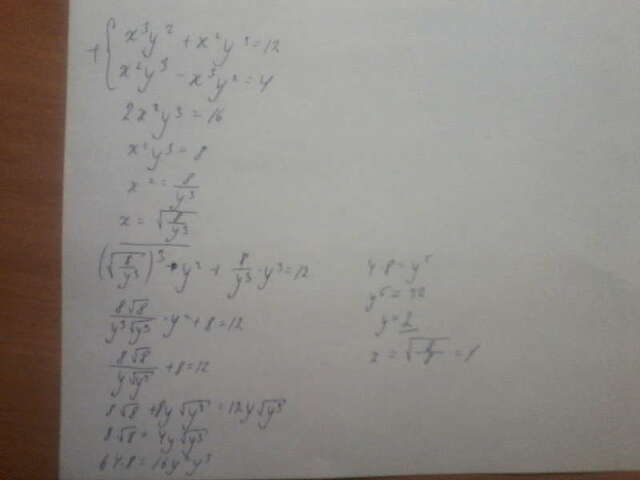 + { x³y² + x²y³ = 12
x²y³ - x³y² = 4
2x²y³ = 16
x²y³ = 8
x² = 8/y³
x = √(8/y³)
(√(8/y³))³ · y² + 8/y³ · y³ = 12
8√8/(y³√y³) · y² + 8 = 12
8√8/(y√y³) + 8 = 12
8√8 + 8y√y³ = 12y√y³
8√8 = 4y√y³
64·8 = 16y²y³
4·8 = y⁵
y⁵ = 32
y = 2